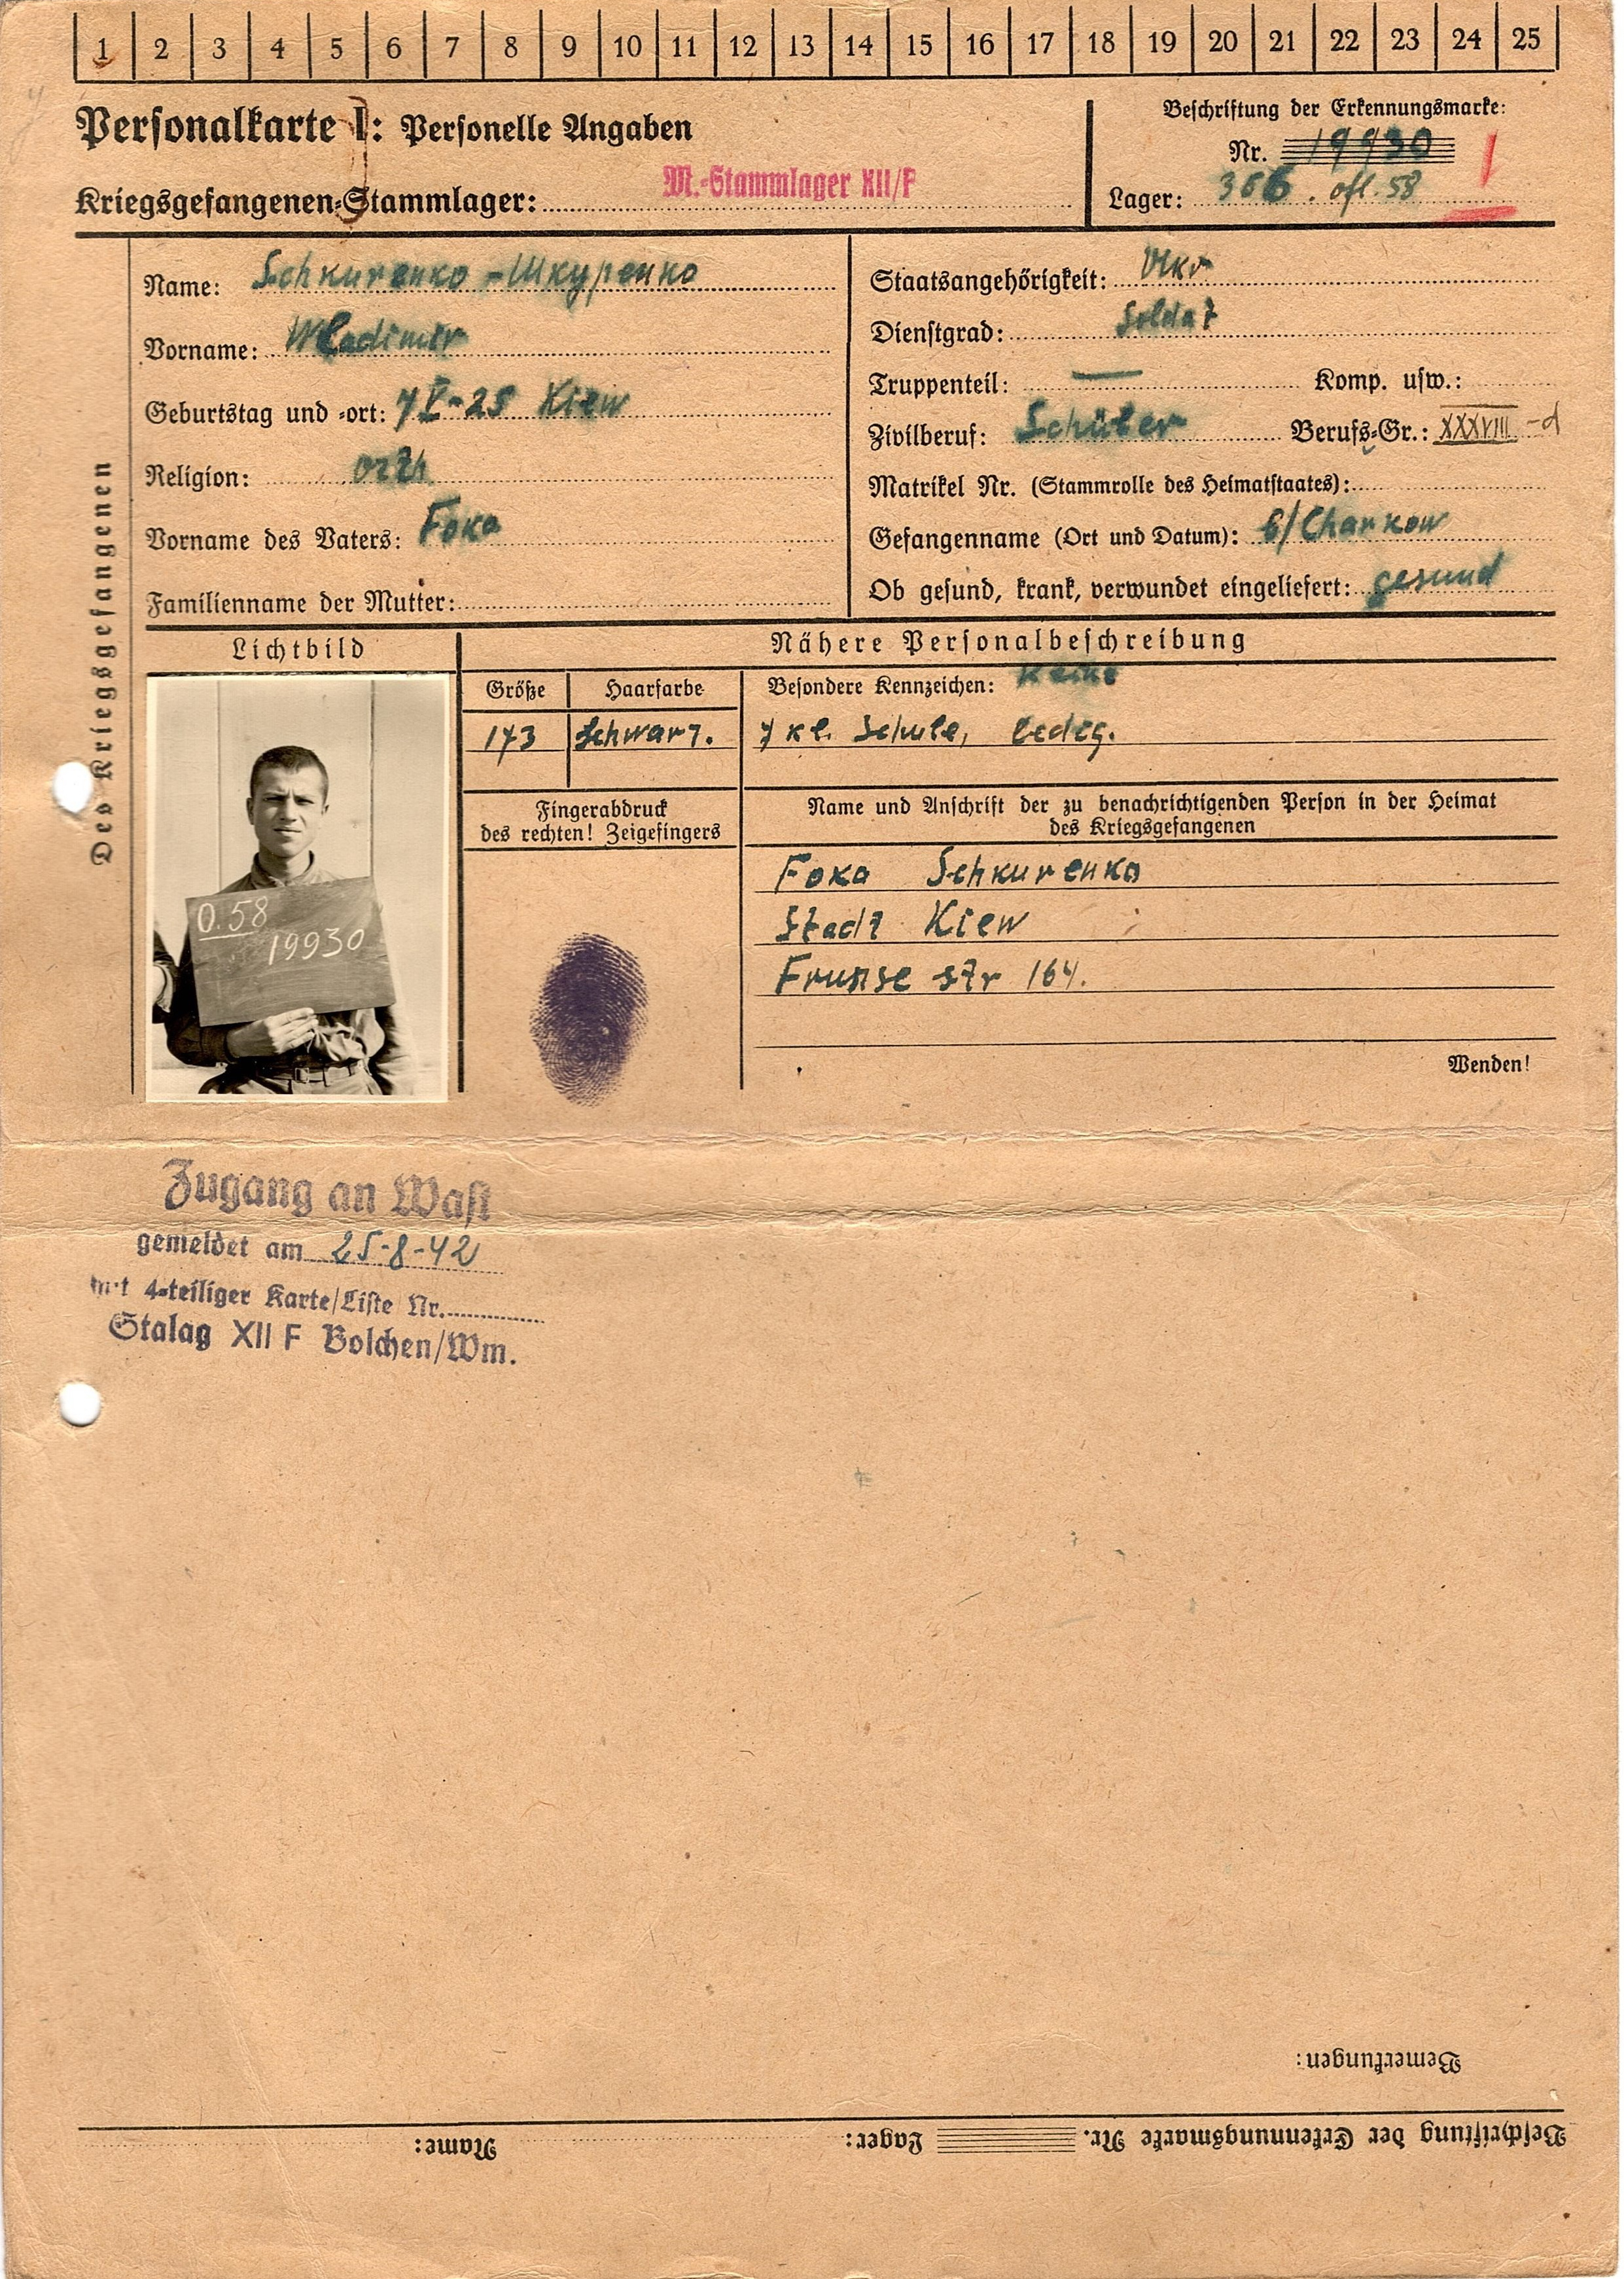 1 2 3 4 5 6 7 8 9 10 11 12 13 14 15 16 17 18 19 20 21 22 23 24 25
Personalkarte I: Personelle Angaben
Kriegsgefangenen-Stammlager: M.-Stammlager XII/F
Beschriftung der Erkennungsmarke:
Nr. 19930
Lager: 366. ofl. 58
Des Kriegsgefangenen
Name: Schkurenko - Шкуренко
Vorname: Wladimir
Geburtstag und -ort: 7 V-25 Kiew
Religion: orth
Vorname des Vaters: Foka
Familienname der Mutter:
Staatsangehörigkeit: Ukr
Dienstgrad: Soldat
Truppenteil: — Komp. usw.:
Zivilberuf: Schüler Berufs-Gr.: XXXVIII -d
Matrikel Nr. (Stammrolle des Heimatstaates):
Gefangenname (Ort und Datum): 6/Charkow
Ob gesund, krank, verwundet eingeliefert: gesund
Lichtbild
0.58
19930
Nähere Personalbeschreibung
Größe Haarfarbe
173 Schwarz.
Besondere Kennzeichen: Keine
7 kl. Schule, ledig.
Fingerabdruck
des rechten! Zeigefingers
Name und Anschrift der zu benachrichtigenden Person in der Heimat
des Kriegsgefangenen
Foka Schkurenko
Stadt Kiew
Frunse str 164.
Wenden!
Zugang an Wast
gemeldet am 25-8-42
mit 4-teiliger Karte/Liste Nr.
Stalag XII F Bolchen/Wm.
Bemerkungen:
Beschriftung der Erkennungsmarke Nr. Lager: Name: